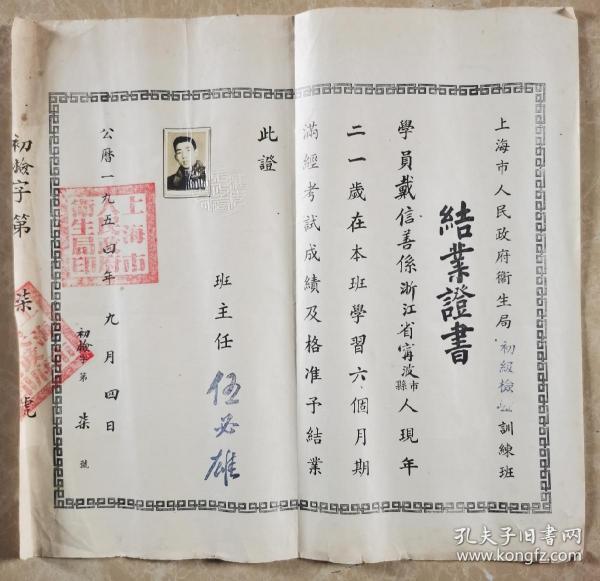 上海市人民政府衞生局初級檢驗訓練班
結業證書
學員戴信善係浙江省甯波市縣人現年
二一歲在本班學習六個月期
滿經考試成績及格准予結業
此證
班主任 伍必雄
上海市人民政府衞生局印
公曆一九五四年九月四日
初檢字第柒號
初檢字第柒號
孔夫子旧书网
www.kongfz.com